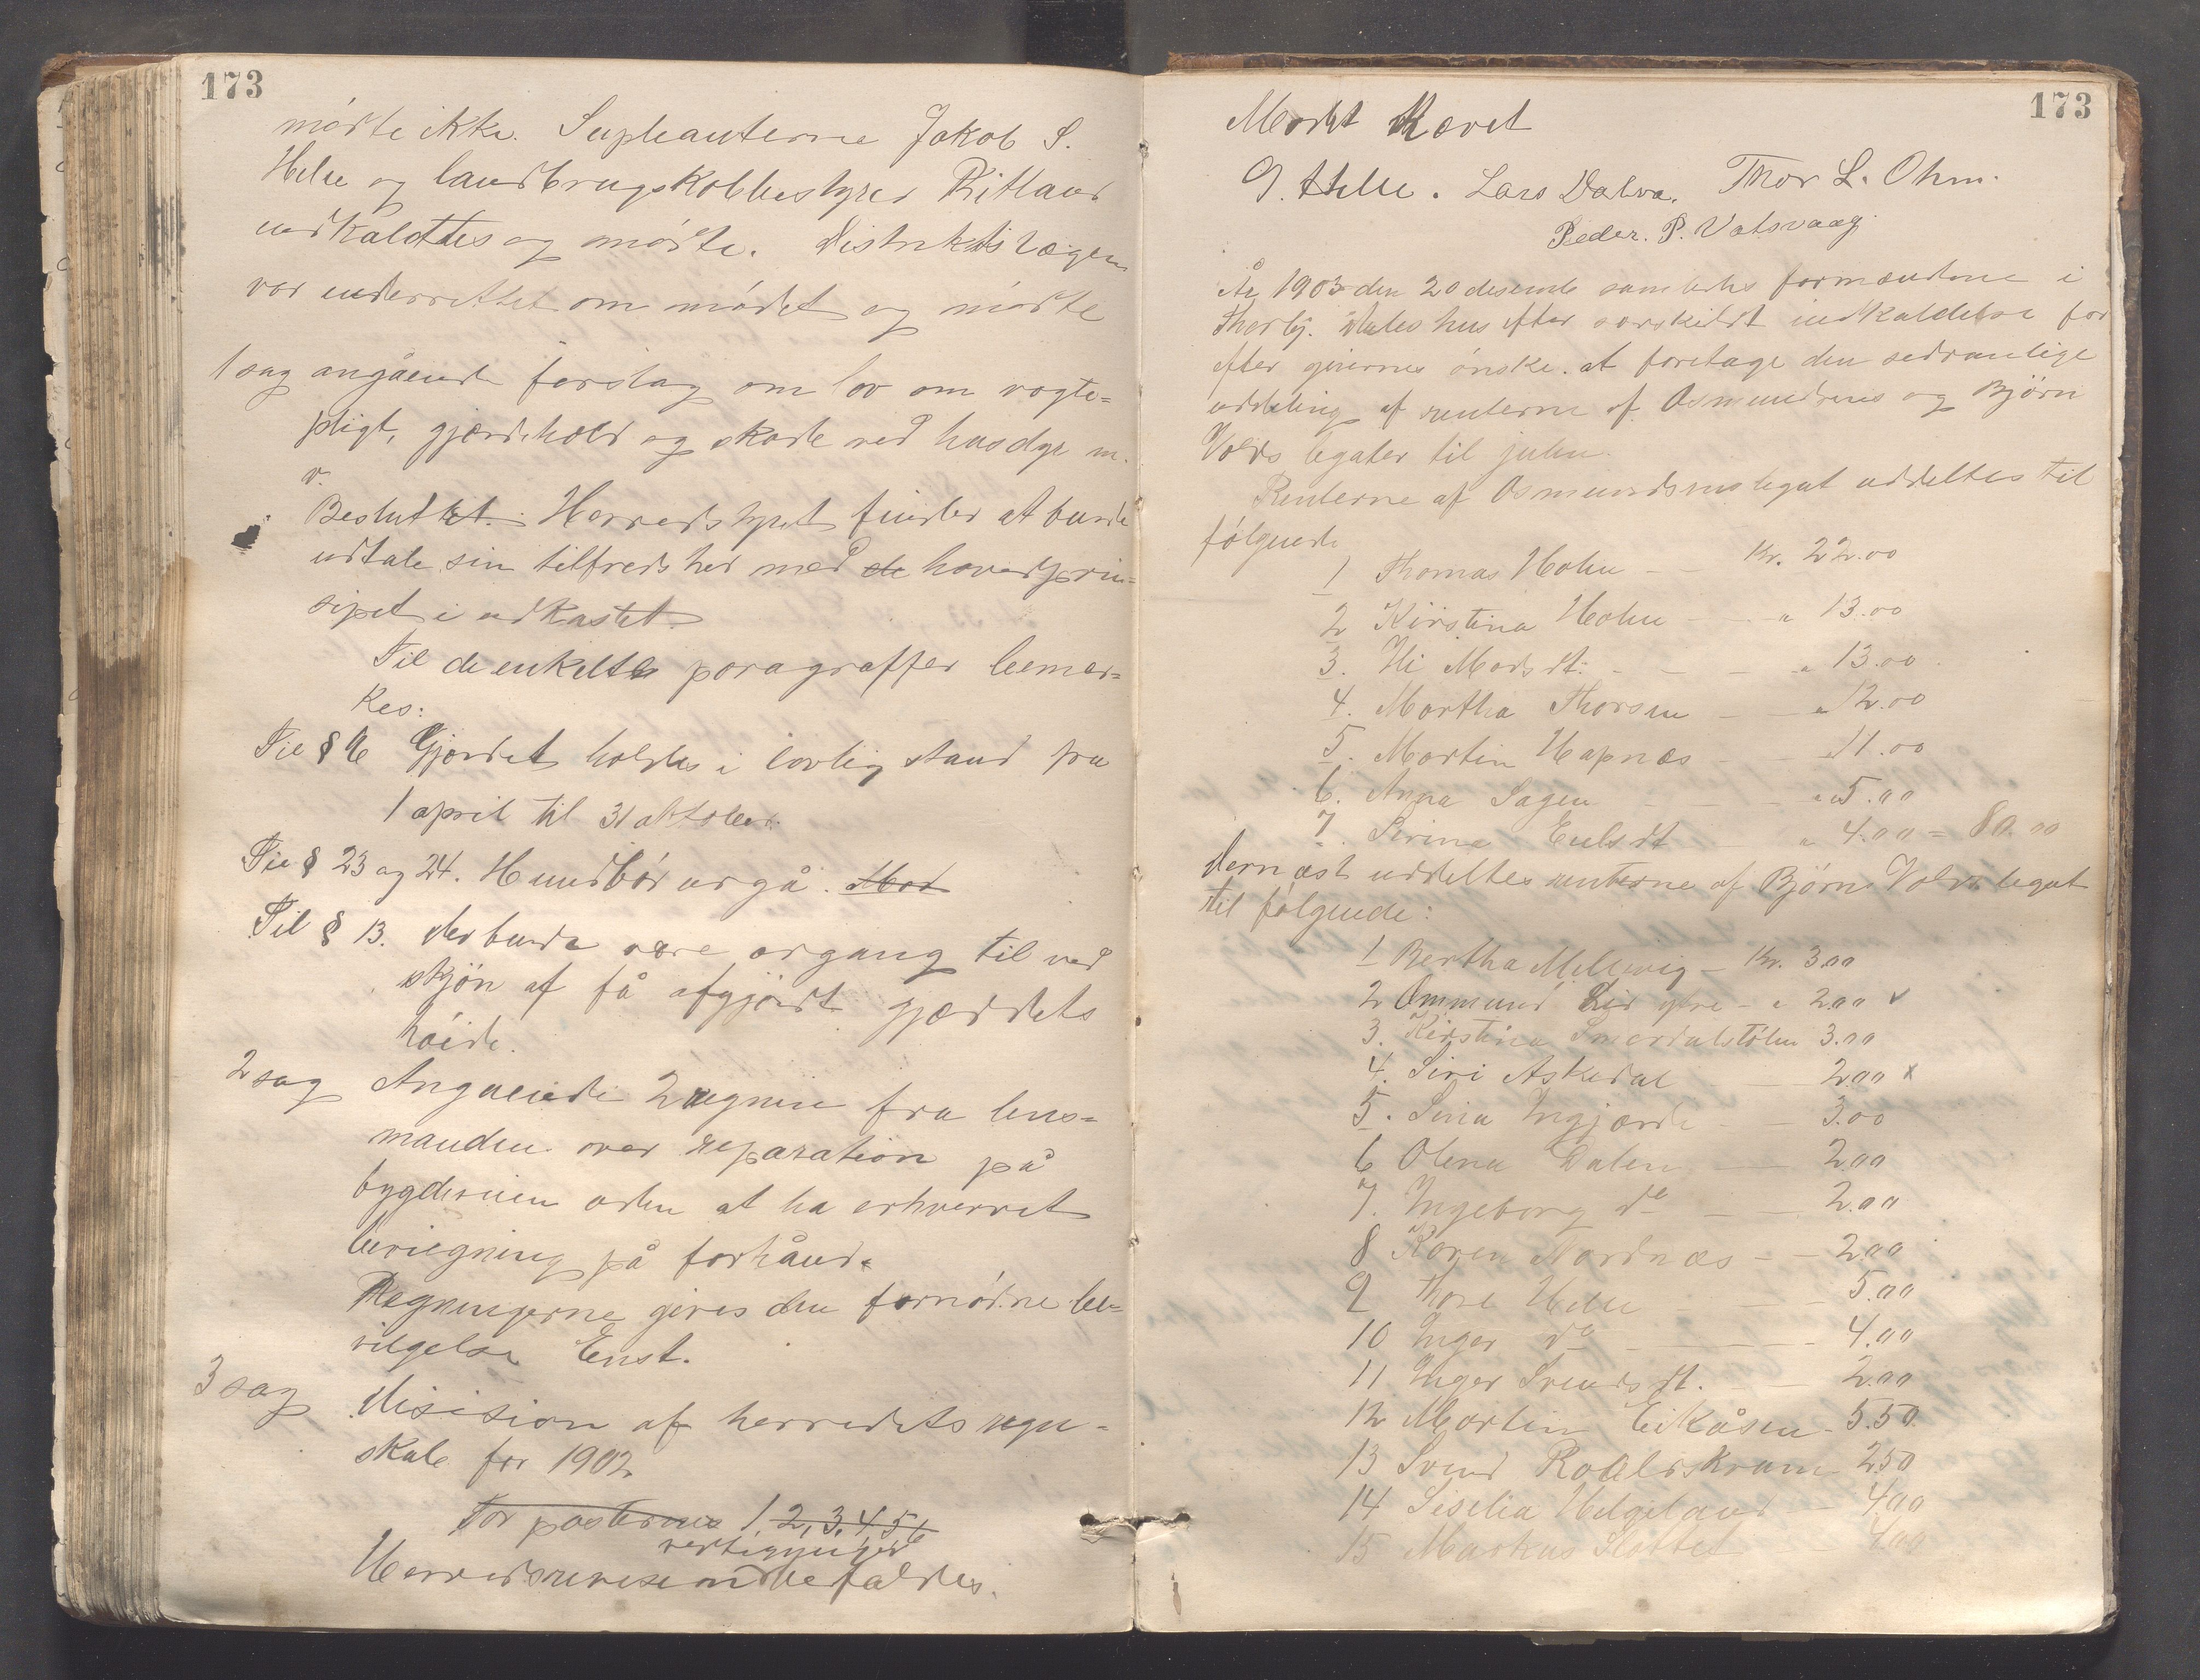 173
mødte ikke. Supleanterne Jakob S.
Helle og landbrugskolbestyrer Ritland
indkaldtes og mødte. Distriktslægen
var underrettet om mødet og mødte
1 sag angående forslag om lov om vogte=
pligt, gjærdehold og skade ved husdyr m.
v.
Besluttet: Herredstyret finder at burde
udtale sin tilfredshed med de hovedprin=
sipet i udkastet.
Til de enkelte paragraffer bemær=
kes:
Til § 6 Gjærdet holdes i lovlig stand fra
1 april til 31 oktober.
Til § 23 og 24. Hundbør udgå. Mod
Til § 13. Der burde være adgang til ved
skjøn at få afgjørdt gjærdets
høide.
2 sag Angaaende 2 regnin fra lens=
manden over reparation på
bygdeveien uden at ha erhvervet
bevilgning på forhånd.
Regningerne gives den fornødne be=
vilgelse Enst.
3 sag Disision af herredets regn=
skab for 1902
For posterne 1, 2, 3, 4 5 6
Herredsrevisionens rettigninger befaldes.
173
Mødet Hævet
G. Helle. Lars Dalva. Thor L. Ohm.
Peder. P. Vatsvaag
År 1903 den 20 desemb samledes formændene i
Thorbj. Dales hus efter særskildt indkaldelse for
efter givernes ønske at foretage den sedvanlige
uddeling af renterne af Osmundsens og Bjørn
Volds legater til julen.
Renterne af Osmundsenslegat uddeltes til
følgende
1 Thomas Holen — Kr. 22.00
2 Kirstina Holen — " 13.00
3. Eli Madsdt: — " 13.00
4. Martha Thorsen — " 12.00
5. Martin Hapnæs — " 11.00
6. Anna Sagen — " 5.00
7. Serina Eielsdt — " 4.00 = 80.00
Dernæst uddeltes renterne af Bjørn Volds legat
til følgende:
1 Bertha Mellevig — Kr. 3.00
2 Ommund Lid ytre — " 2.00 v
3. Kirstina Smørdalstølen 3.00
4. Siri Askedal — 2.00 x
5. Sina Ingjærde — 3.00
6 Olena Dalen — 2.00
7. Ingeborg do — 2.00
8 Karen Nordnæs — 2.00
9 Thore Helle — 5.00
10 Inger do — 4.00
11 Inger Svendsdt. — 2.00
12 Martin Eikåsen — 5.50
13 Svend Roaldskvam — 2.50
14 Siselia Helgeland — 4.00
15 Markus Slottet — 4.00